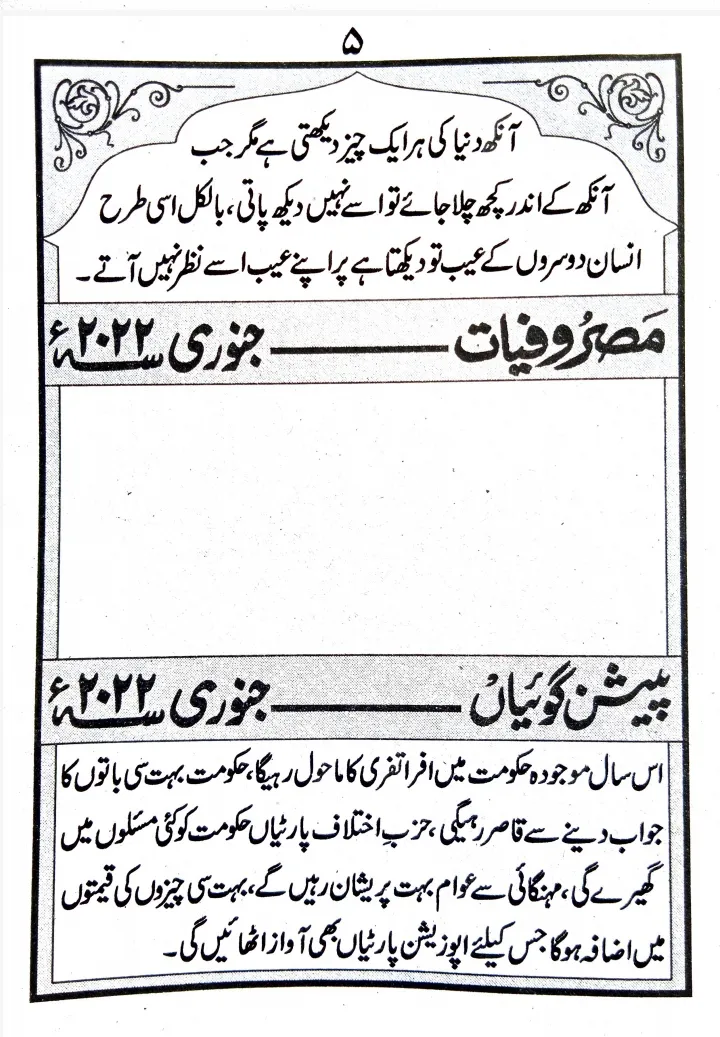 ۵
آنکھ دنیا کی ہر ایک چیز دیکھتی ہے مگر جب
آنکھ کے اندر کچھ چلا جائے تو اسے نہیں دیکھ پاتی، بالکل اسی طرح
انسان دوسروں کے عیب تو دیکھتا ہے پر اپنے عیب اسے نظر نہیں آتے۔
مَصرُوفیات ــــــــ جنوری ۲۰۲۲ء
پیشن گوئیاں ــــــــ جنوری ۲۰۲۲ء
اس سال موجودہ حکومت میں افراتفری کا ماحول رہیگا، حکومت بہت سی باتوں کا
جواب دینے سے قاصر رہیگی، حزبِ اختلاف پارٹیاں حکومت کو کئی مسئلوں میں
گھیرے گی، مہنگائی سے عوام بہت پریشان رہیں گے، بہت سی چیزوں کی قیمتوں
میں اضافہ ہوگا جس کیلئے اپوزیشن پارٹیاں بھی آواز اٹھائیں گی۔